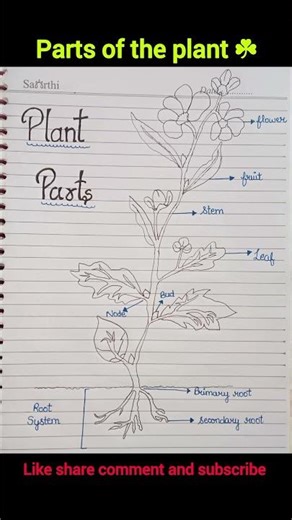 Parts of the plant ☘
Saarthi
Date
Plant
Parts
flower
fruit
Stem
Leaf
Bud
Node
Root
System
Primary root
Secondary root
Like share comment and subscribe